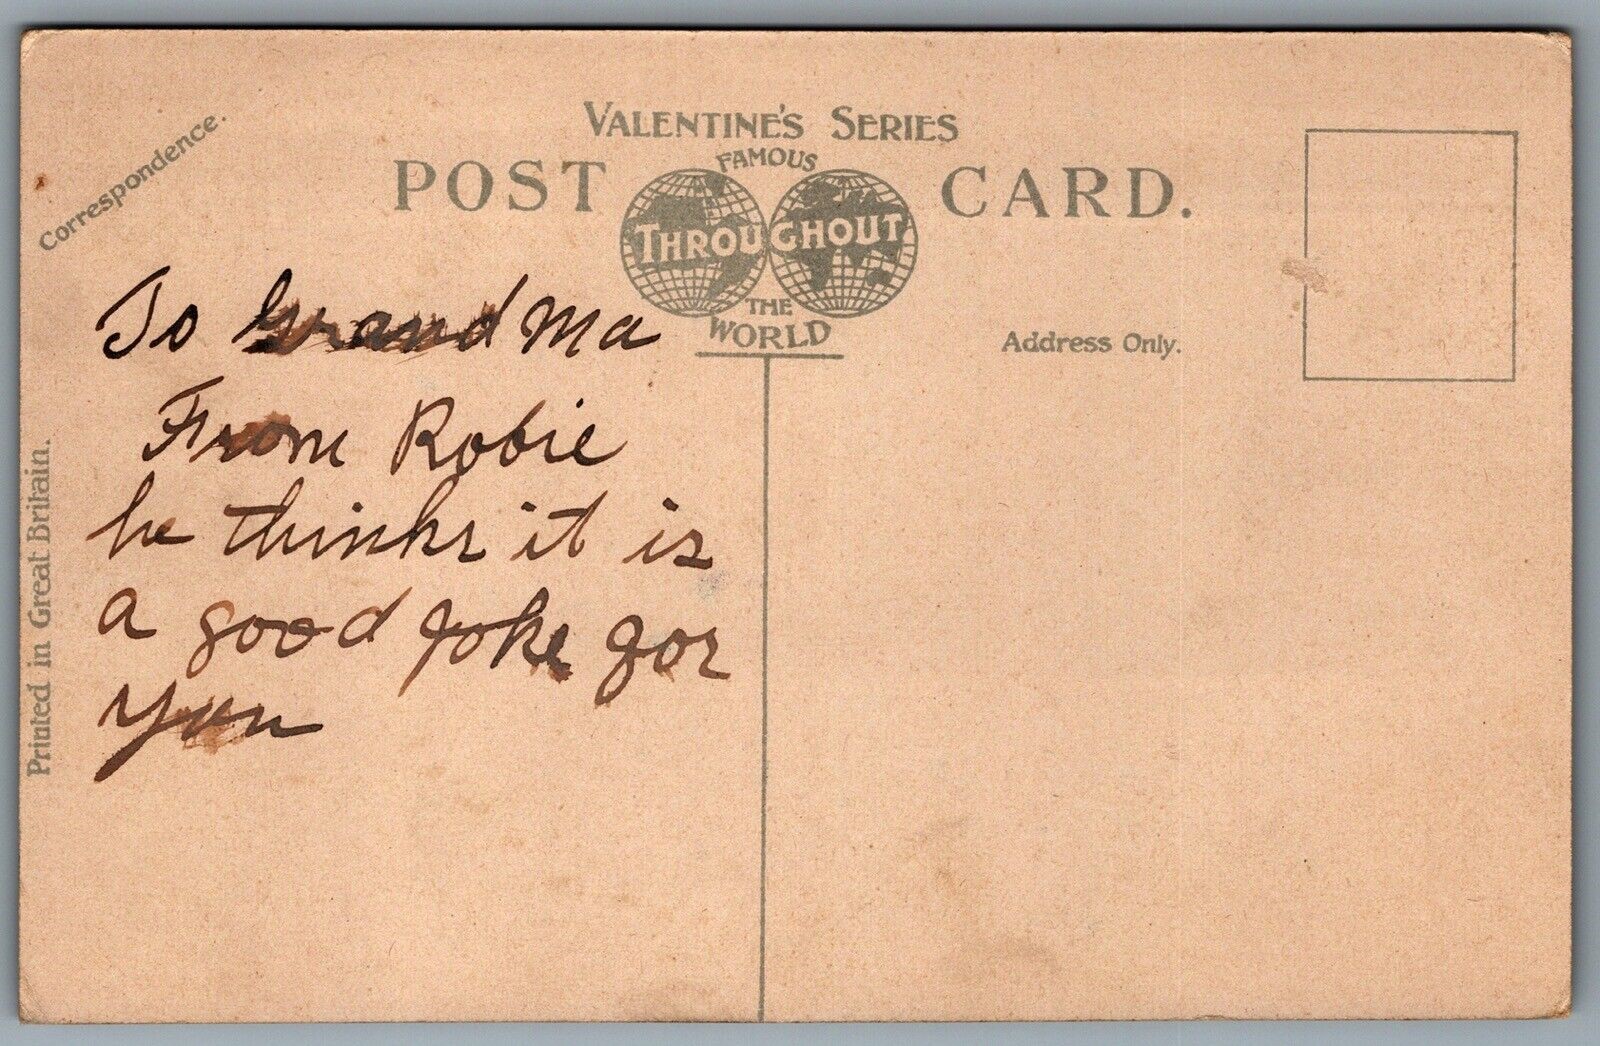 VALENTINE'S SERIES
FAMOUS
POST CARD.
THROUGHOUT
THE
WORLD
Correspondence.
Address Only.
Printed in Great Britain.
To Grand Ma
From Robie
he thinks it is
a good joke for
you